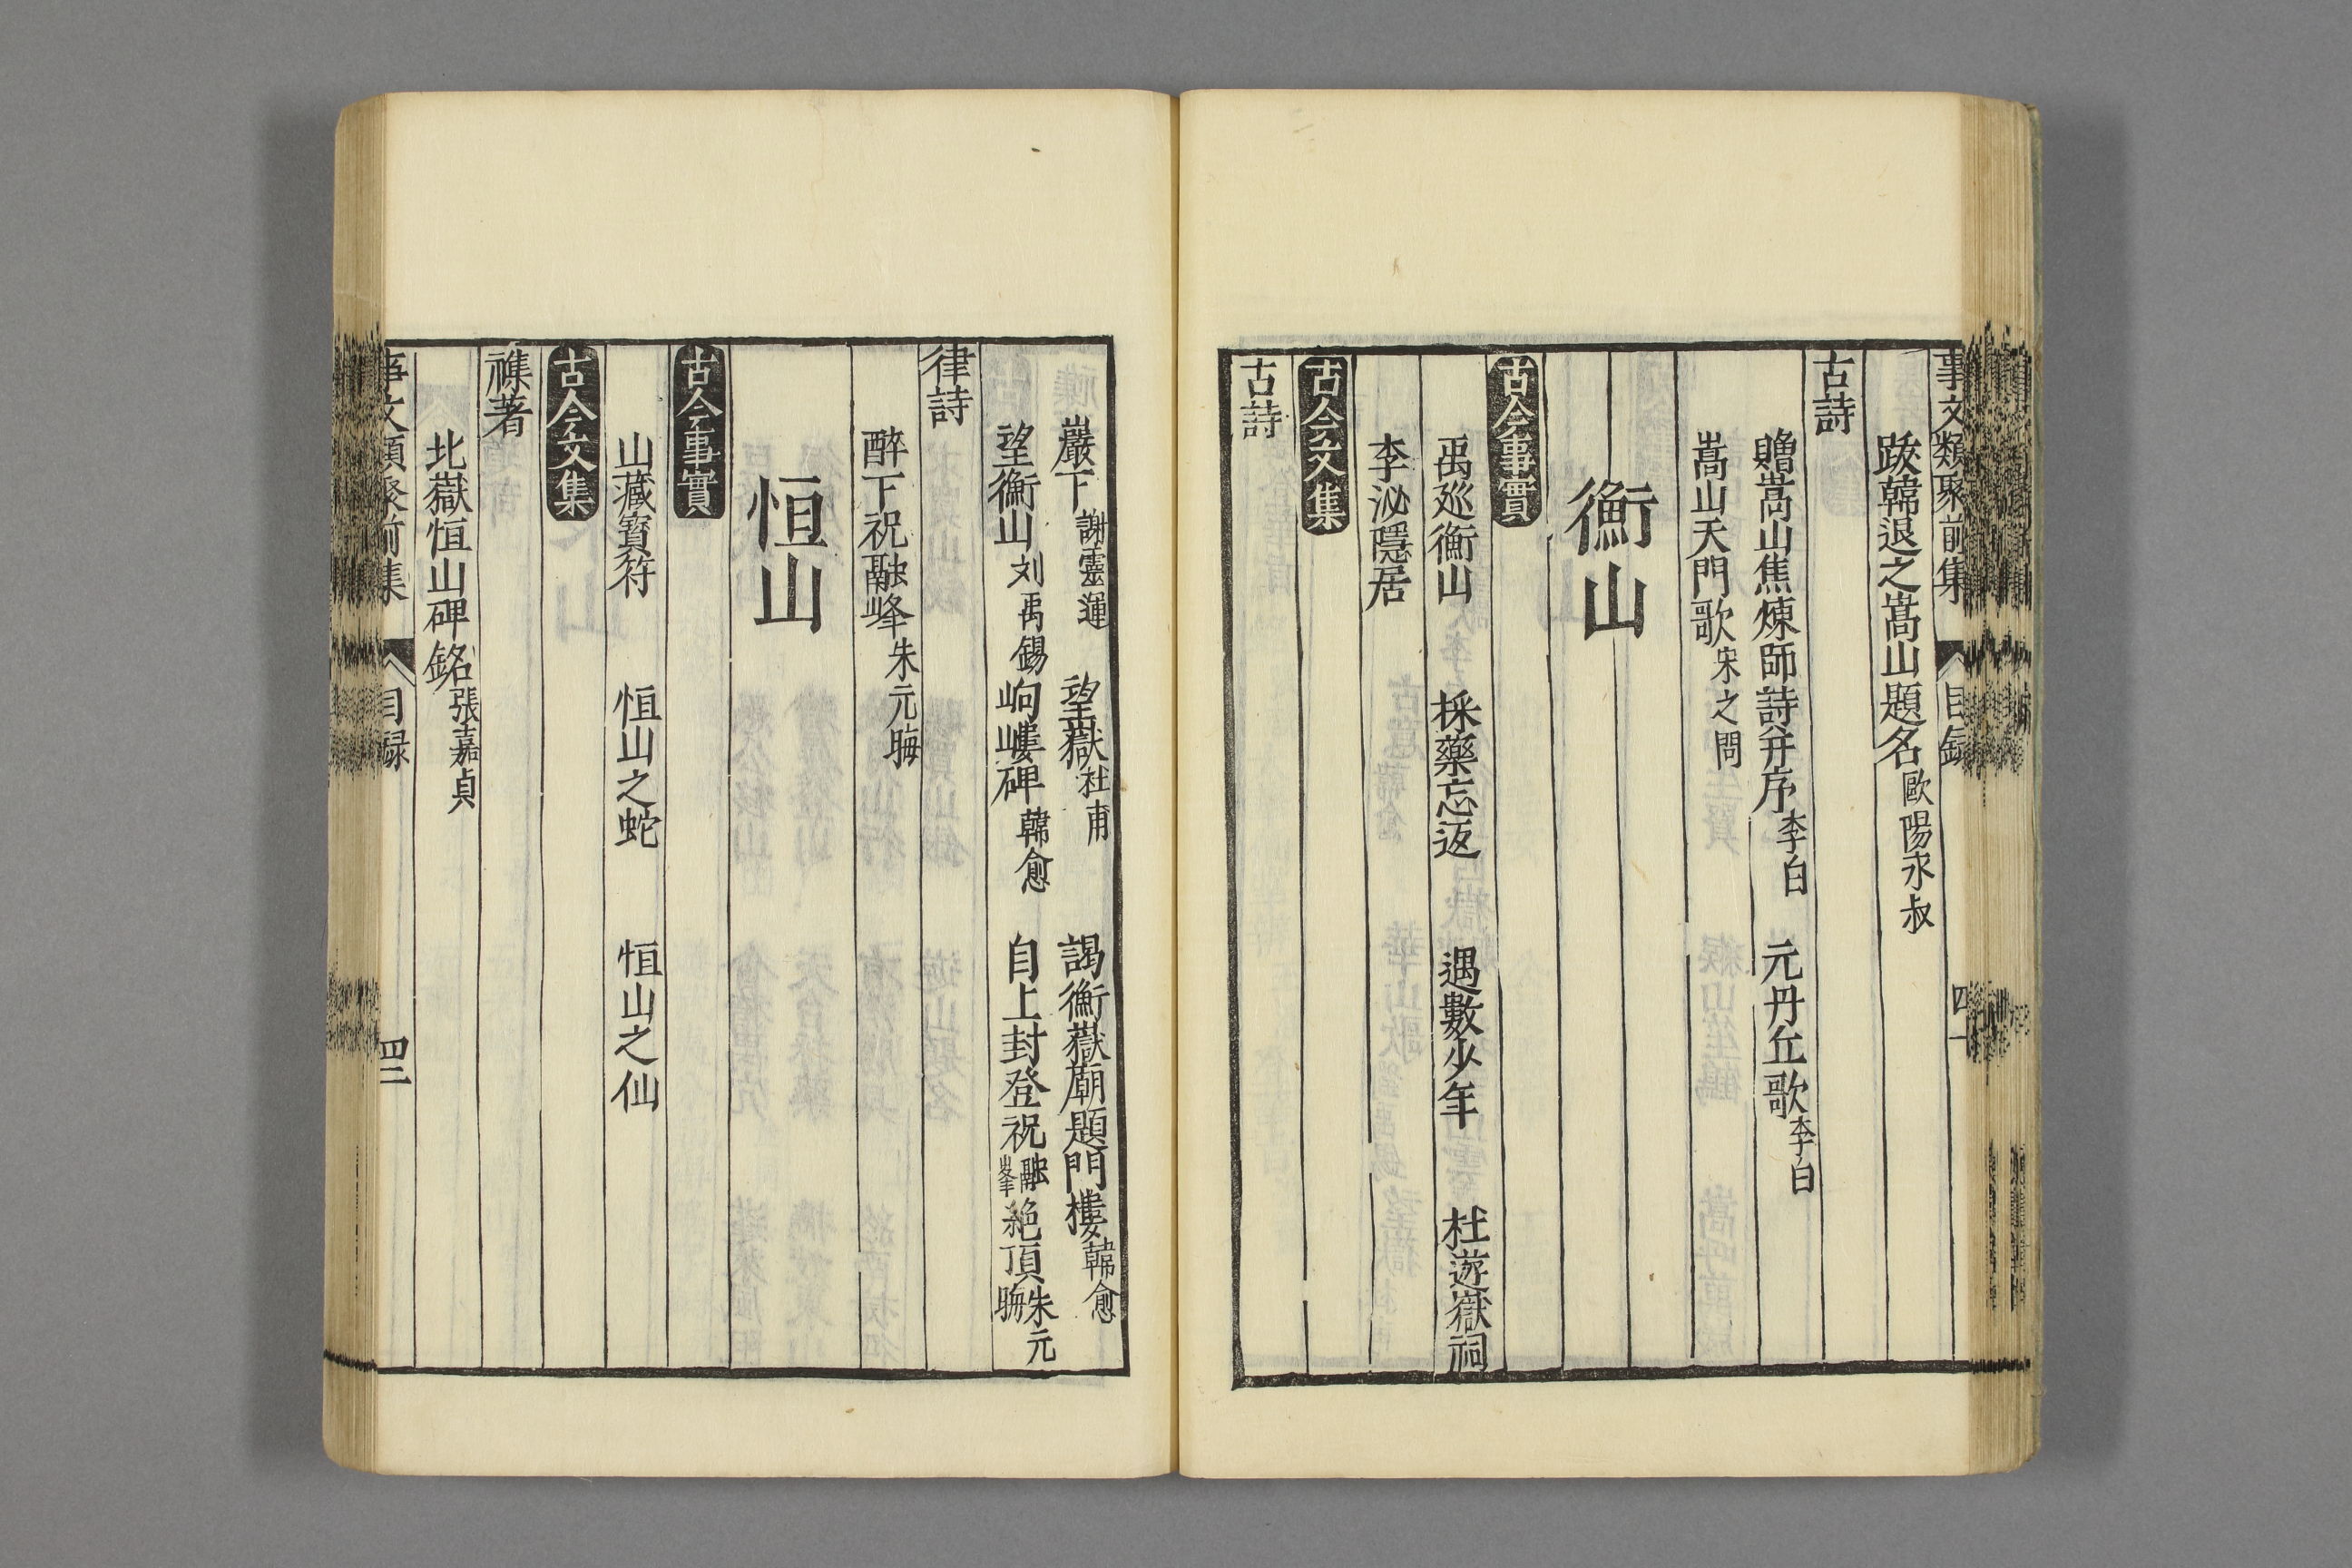 事文類聚前集 目録 四一
跋韓退之嵩山題名歐陽永叔
古詩
贈嵩山焦煉師詩并序李白 元丹丘歌李白
嵩山天門歌宋之問
衡山
古今事實
禹廵衡山 採藥忘返 遇數少年 杜遊嶽祠
李泌隱居
古今文集
古詩
巖下謝靈運 望嶽杜甫 謁衡嶽廟題門樓韓愈
望衡山刘禹錫 岣嶁碑韓愈 自上封登祝融峯絶頂朱元晦
律詩
醉下祝融峰朱元晦
恒山
古今事實
山藏寳符 恒山之蛇 恒山之仙
古今文集
襍著
北嶽恒山碑銘張嘉貞
事文類聚前集 目録 四二